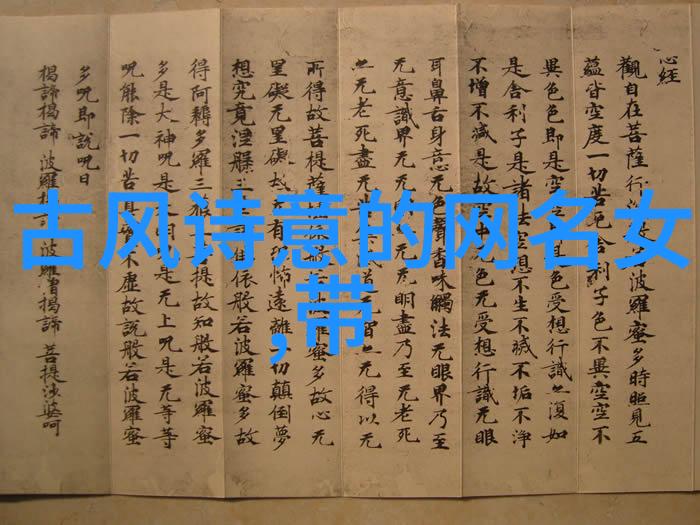 古风诗意的网名女
,带
心经
觀自在菩薩行波羅蜜多時照見五
蘊皆空度一切苦厄舍利子色不異空空不
異色色即是空空色受想行識亦復如
是舍利子是諸法空想不生不滅不垢不淨
不增不減是故空中色无受想行識无眼
耳鼻舌身意无色聲香味觸法无眼界乃至
无意識界无无明盡乃至无老死
亦无老死盡无道无智亦无得以无
所得故菩提薩般若波羅蜜多故心无
罣礙无罣礙故有恐怖遠離一切顛倒夢
想究竟涅槃三依般若波羅蜜多故
得阿耨多羅三藐菩提故知般若波羅蜜
多是大神呪是大明呪是无上呪是无等等
呪能除一切苦真實不虛故說般若波羅蜜
多呪即說呪曰
揭諦揭諦 波羅揭諦 波羅僧揭諦 菩提娑婆呵